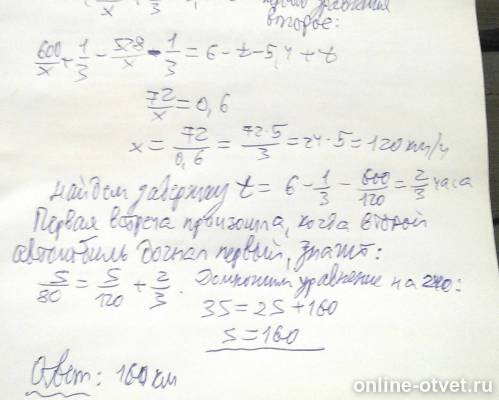 второе:
600/x + 1/3 - 528/x - 1/3 = 6 - t - 5,4 + t
72/x = 0,6
x = 72/0,6 = 72·5/3 = 24·5 = 120 км/ч
Найдем задержку t = 6 - 1/3 - 600/120 = 2/3 часа
Первая встреча произошла, когда второй
автомобиль догнал первый, значит:
S/80 = S/120 + 2/3. Домножим уравнение на 240:
3S = 2S + 160
S = 160
Ответ: 160 км
online-otvet.ru